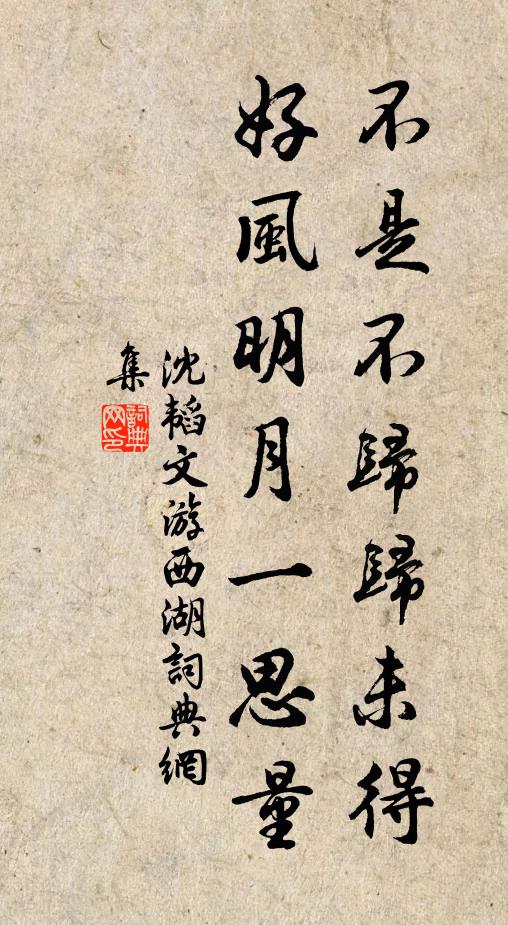 不是不歸歸未得
好風明月一思量
沈韬文游西湖詞典網
集
詞典網印